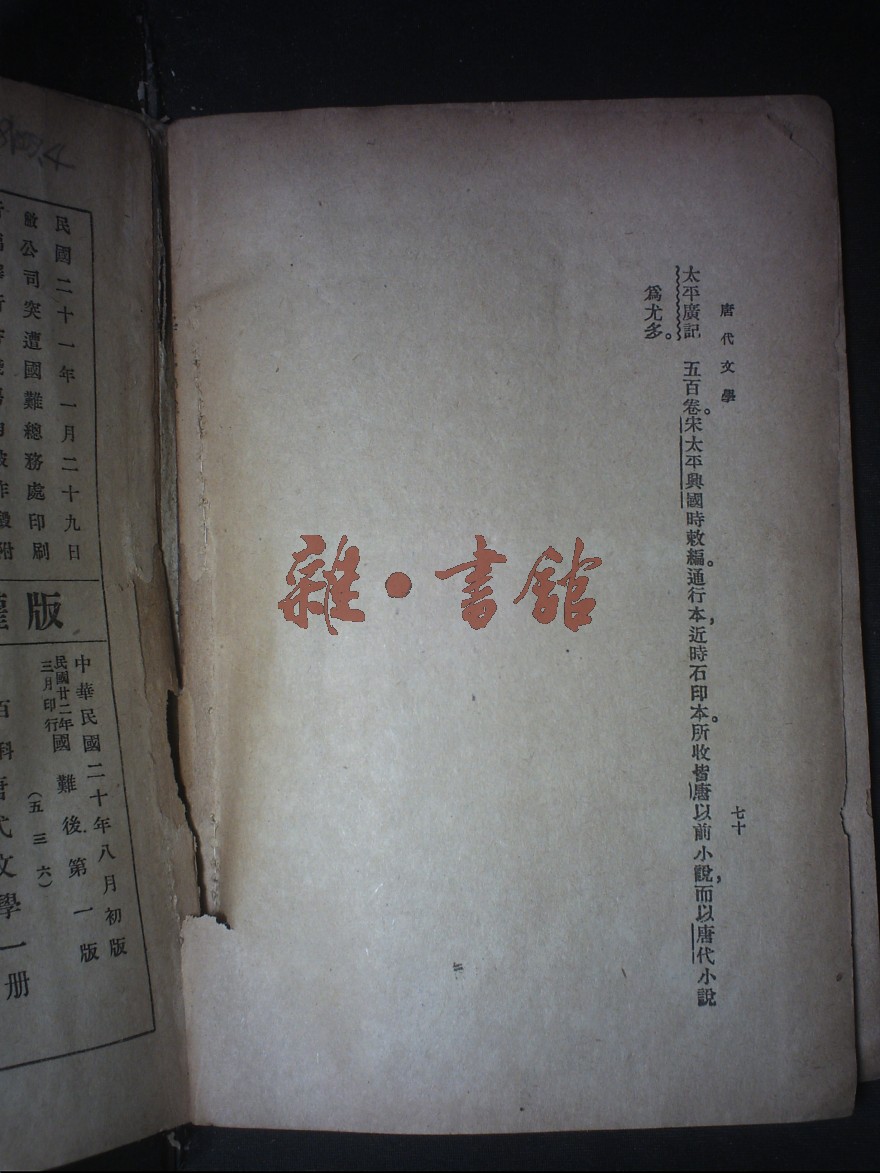 唐代文學
七十
太平廣記　五百卷。宋太平興國時敕編。通行本，近時石印本。所收皆唐以前小說，而以唐代小說
爲尤多。
雜·書館
民國二十一年一月二十九日
敝公司突遭國難總務處印刷
版
中華民國二十年八月初版
民國廿二年
三月印行
國難後第一版
（五三六）
百科唐代文學一册